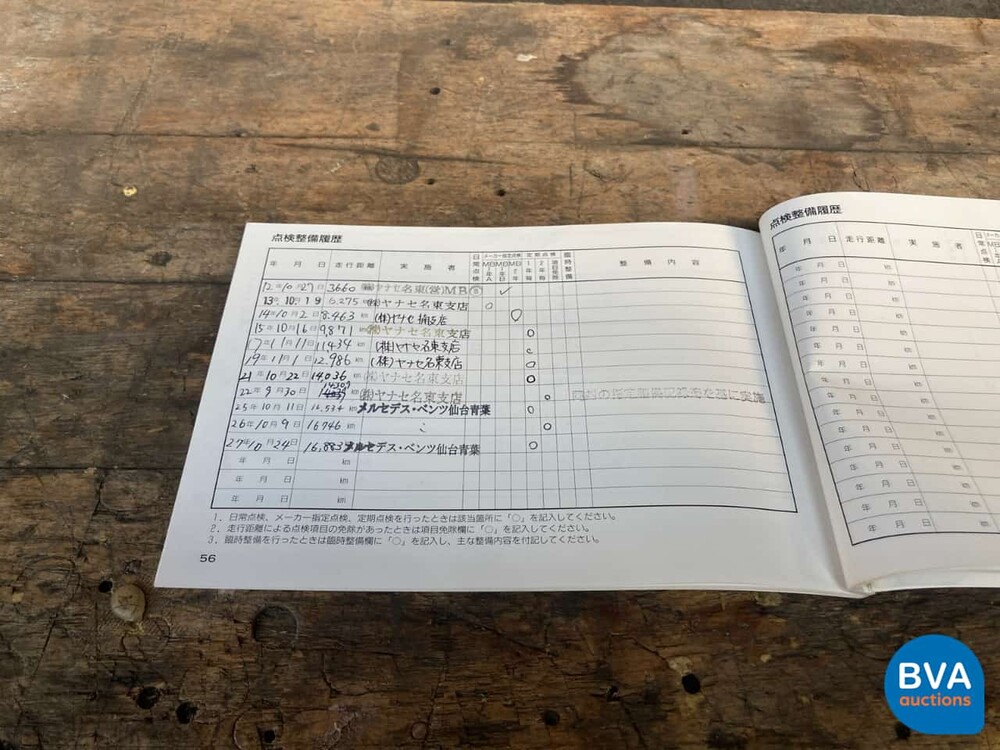 点検整備履歴
年 月 日 走行距離 実施者 日常点検 メーカー指定点検 定期点検 臨時整備 整備内容
12年10月27日 3660 ㈱ヤナセ名東(営)MB
13年10月19 6,275 ㈱ヤナセ名東支店
14年10月2日 8,463 km (株)ヤナセ 支店
15年10月16日 9,871 ㈱ヤナセ名東支店
17年11月11日 11434 (株)ヤナセ名東支店
19年11月1日 12,986 (株)ヤナセ名東支店
21年10月22日 14,036 km ㈱ヤナセ名東支店
22年9月30日 km ㈱ヤナセ名東支店
25年10月11日 km メルセデス・ベンツ仙台青葉
26年10月9日 16746 km
27年10月24日 16,883 メルセデス・ベンツ仙台青葉
年 月 日 km
年 月 日 km
年 月 日 km
1、日常点検、メーカー指定点検、定期点検を行ったときは該当箇所に「○」を記入してください。
2、走行距離による点検項目の免除があったときは項目免除欄に「○」を記入してください。
3、臨時整備を行ったときは臨時整備欄に「○」を記入し、主な整備内容を付記してください。
56
点検整備履歴
年 月 日 走行距離 実施者
年 月 日 km
年 月 日 km
年 月 日 km
年 月 日 km
年 月 日 km
年 月 日 km
年 月 日 km
年 月 日 km
年 月 日 km
年 月 日 km
年 月 日 km
年 月 日 km
年 月 日 km
年 月 日 km
BVA
auctions